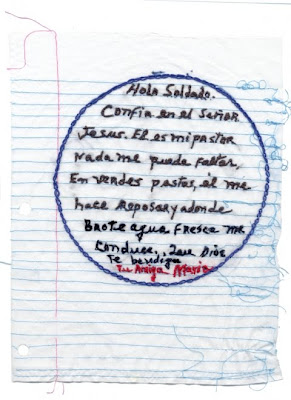 Hola Soldado.
Confia en el Señor
Jesus. El es mi pastor
Nada me puede faltar,
En verdes pastos, el me
hace reposar y adonde
Brote agua fresca me
conduce, que Dios
Te bendiga
Tu Amiga Maria